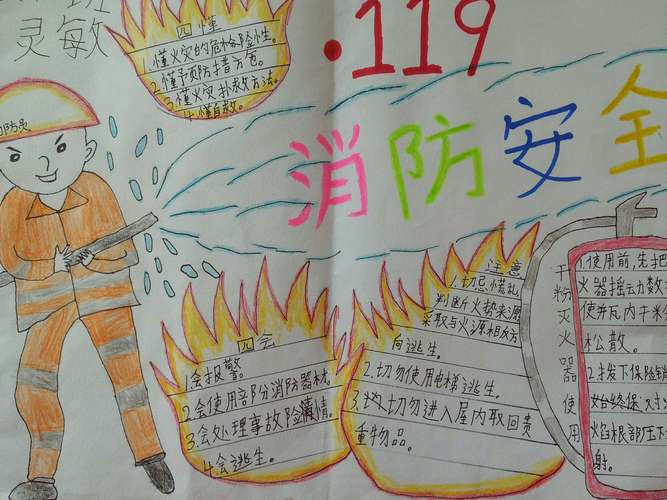 班
灵敏
·119
消防安全
消防员
四懂
1.懂火灾的危险性。
2.懂予页防措方包。
3.懂火灾扑救方法。
4.懂自救。
四会
1.会报警。
2.会使用部份消防器材。
3.会处理事故险情。
4.会逃生。
注意
1.切忌慌乱
判断火势来源
采取与火源相反方
向逃生。
2.切勿使用电梯逃生。
3.切勿进入屋内取回贵
重物品。
干粉灭火器使用
1.使用前,先把
火器摇动数
使井瓦内干粉
松散。
2.拔下保险销
始终保
火焰根部压下
射。